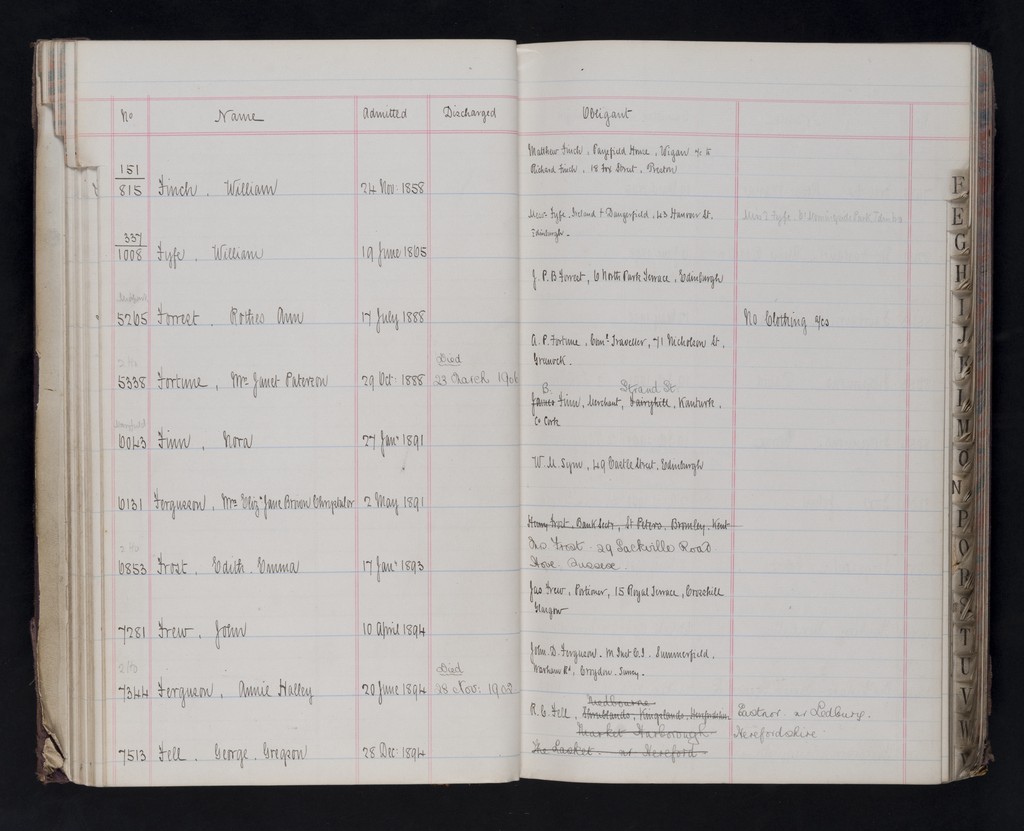 No Name Admitted Discharged Obligant
Matthew Finch, House, Wigan &c to
151
815 Finch, William 24 Nov. 1858 Richard Finch, 18 Fox Street, Preston
Messrs Fyfe, Ireland & Dangerfield, 43 Hanover St.
Edinburgh.
337
1008 Fyfe, William 19 June 1865
J. P. B Forrest, 6 North Park Terrace, Edinburgh
5265 Forrest, Ann 17 July 1888 No Clothing &cs
A. P. Fortune, Coml Traveller, 71 Nicholson St.
Greenock.
Died
5338 Fortune, Mrs Janet Paterson 29 Oct. 1888 23 March 1906
B. Strand St.
James Finn, Merchant, Fairyhill, Kanturk,
Co Cork
6043 Finn, Nora 27 Jany 1891
W. M. Sym, 49 Castle Street, Edinburgh
6131 Fergusson, Mrs Elizth Jane Brown Chrystalor 2 May 1891
Henry Frost, Bank Secy, St Peters, Bromley, Kent
Frost - 29 Sackville Road
Hove. Sussex.
6853 Frost, Edith Emma 17 Jany 1893
Jas Frew, Portioner, 15 Royal Terrace, Crosshill
Glasgow
7281 Frew, John 10 April 1894
John D. Ferguson. M Inst C.E. Summerfield,
Warham Rd, Croydon. Surrey.
Died
7344 Ferguson, Annie Halley 20 June 1894 28 Nov: 1902
Medbourne
R. C. Fell, Shrublands, Kingslands, Herefordshire Eastnor. nr Ledbury.
Market Harborough Herefordshire.
7513 Fell, George Gregson 28 Dec: 1894 nr Hereford
E
F
G
H
I
J
K
L
M
O
N
P
Q
R
T
U
V
W